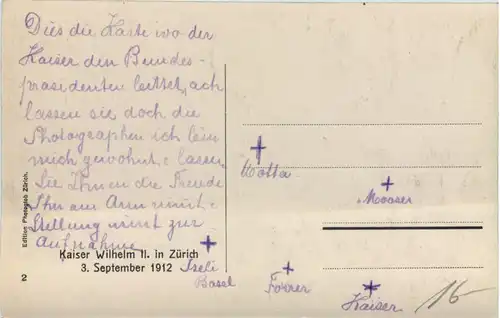 Dies die Karte wo der
Kaiser den Bundes-
präsidenten bittet, ach
lassen sie doch die
Photographen ich bin
mich gewohnt, lassen
Sie Ihnen die Freude
Ihn am Arm nimt,
Stellung nimt zur
Aufnahme
Edition Photoglob Zürich.
Kaiser Wilhelm II. in Zürich
3. September 1912
2
Iseli
Basel
Motta
Mooser
Forrer
Kaiser
16-